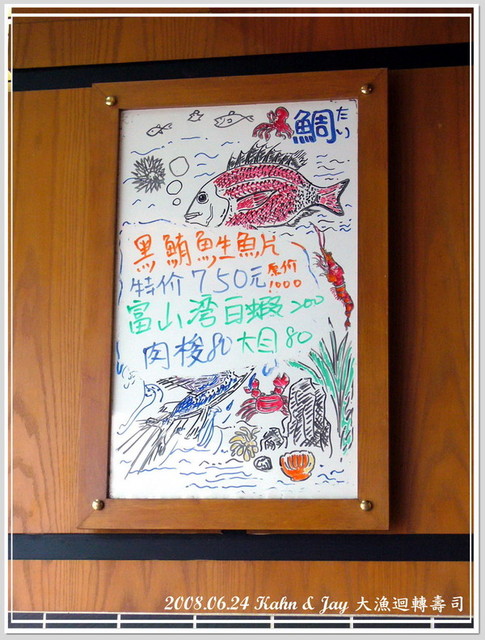 鯛
たい
黑鮪魚生魚片
特价750元 原价1000
富山湾白蝦200
肉梭80 大目80
2008.06.24 Kahn & Jay 大漁迴轉壽司